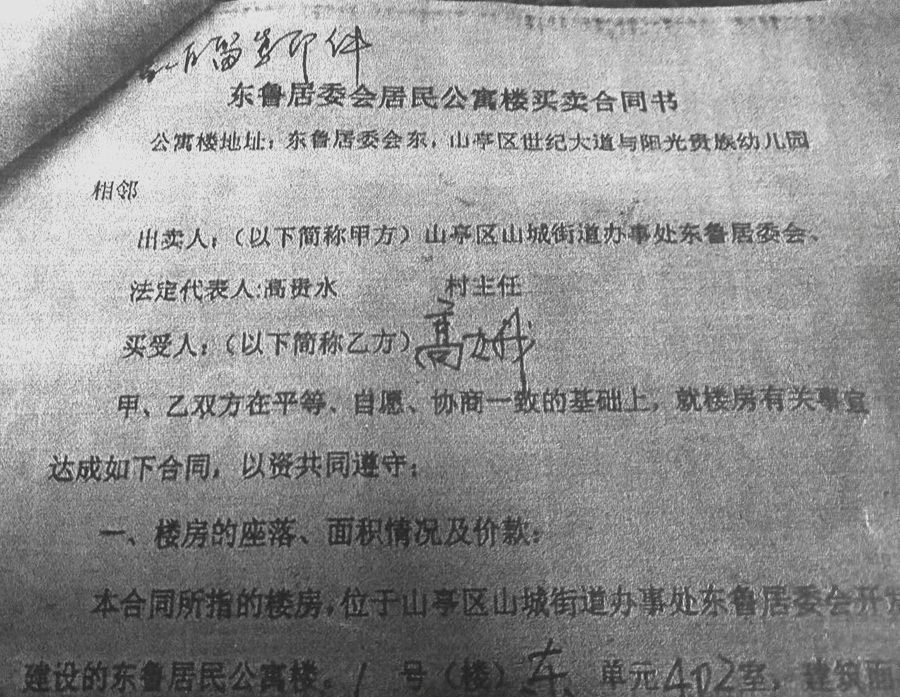 留复印件
东鲁居委会居民公寓楼买卖合同书
公寓楼地址：东鲁居委会东，山亭区世纪大道与阳光贵族幼儿园
相邻
出卖人：（以下简称甲方）山亭区山城街道办事处东鲁居委会、
法定代表人:高贵水 村主任
买受人：（以下简称乙方）高
甲、乙双方在平等、自愿、协商一致的基础上，就楼房有关事宜
达成如下合同，以资共同遵守：
一、楼房的座落、面积情况及价款：
本合同所指的楼房，位于山亭区山城街道办事处东鲁居委会开发
建设的东鲁居民公寓楼。1 号（楼）东 单元402室，建筑面